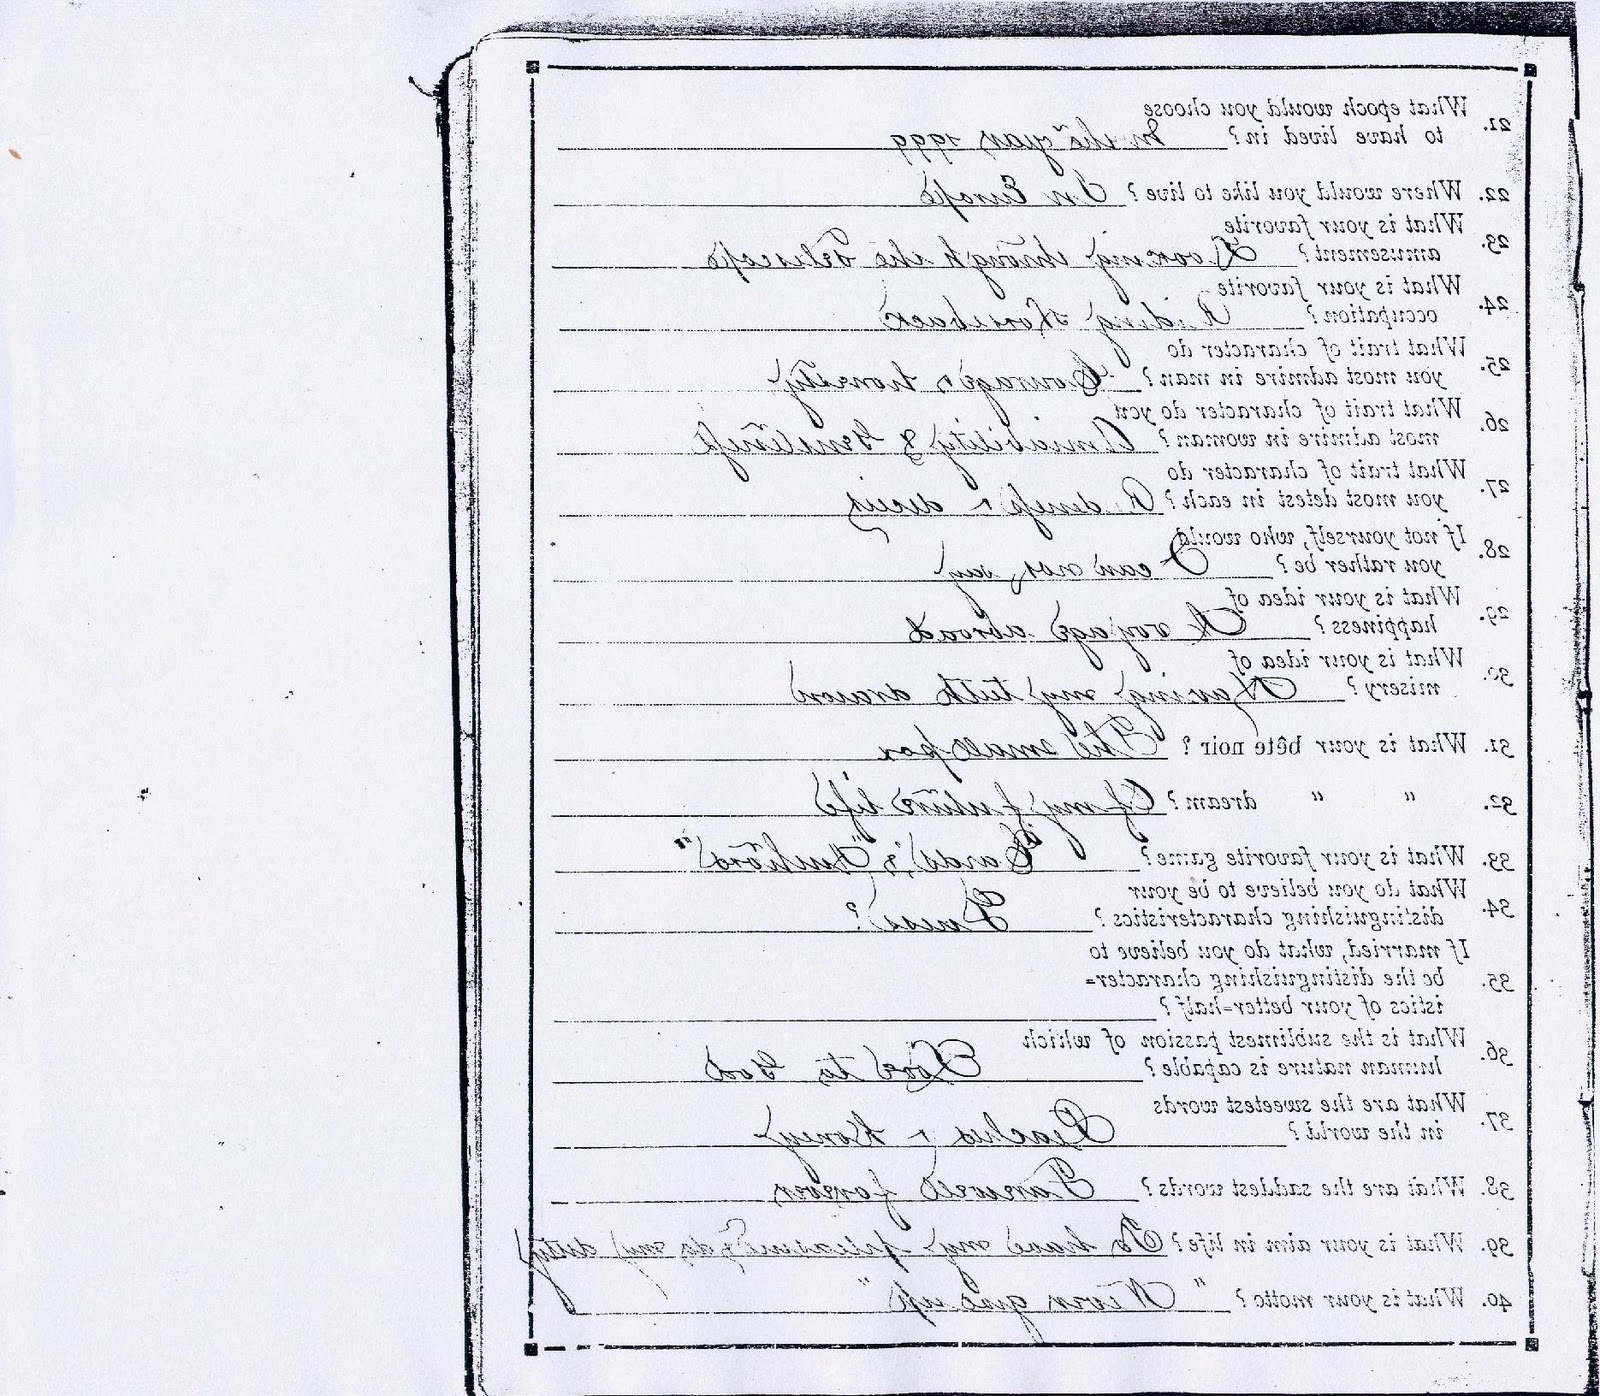 21. What epoch would you choose
to have lived in? In the year 1999
22. Where would you like to live? In Europe
23. What is your favorite
amusement? Looking through the Telescope
24. What is your favorite
occupation? Riding Horseback
25. What trait of character do
you most admire in man? Courage & honesty
26. What trait of character do you
most admire in woman? Amiability & Gentleness
27. What trait of character do
you most detest in each? Rudeness & deceit
28. If not yourself, who would
you rather be? I can not say
29. What is your idea of
happiness? A voyage abroad
30. What is your idea of
misery? Having my teeth drawn
31. What is your bête noir? The small pox
32. " " dream? Of my future life
33. What is your favorite game? Cards & "Authors"
34. What do you believe to be your
distinguishing characteristics? Guess?
35. If married, what do you believe to
be the distinguishing character=
istics of your better=half?
36. What is the sublimest passion of which
human nature is capable? Love to God
37. What are the sweetest words
in the world? Peaches & Honey
38. What are the saddest words? Farewell forever
39. What is your aim in life? To have my pleasure & do my duty
40. What is your motto? "Never give up"